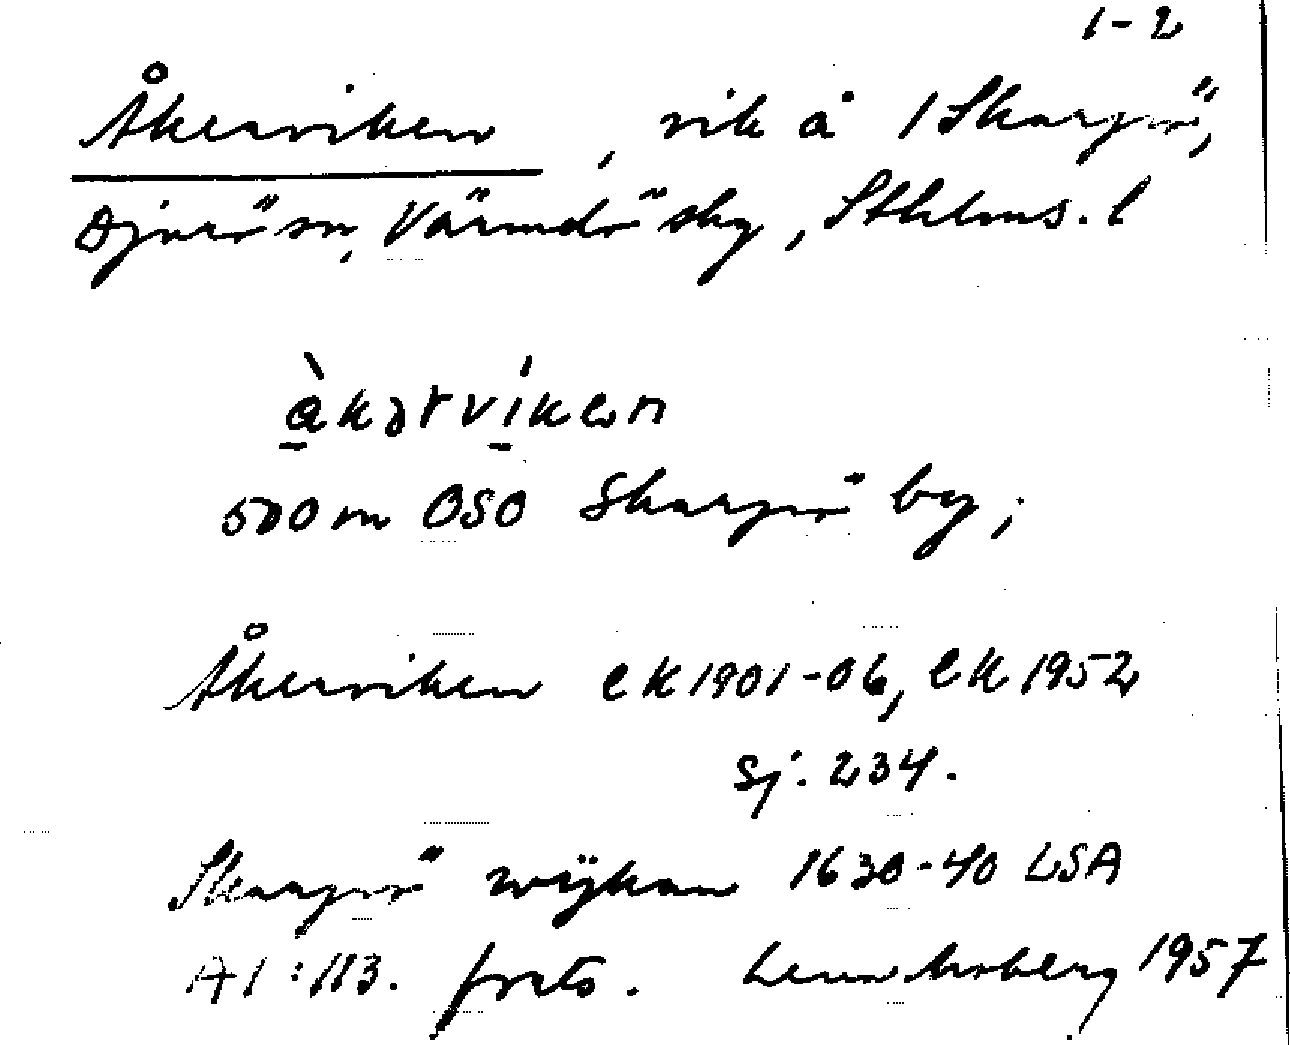 1-2
Åkerviken, vik å /Skarpö,
Djurö sn, Värmdö skg, Sthlms. l
àkərvíken
500 m OSO Skarpö by;
Åkerviken ek 1901-06, ek 1952
sj. 234.
Skarpö wÿkan 1630-40 LSA
A1:113. foto. Moberg 1957